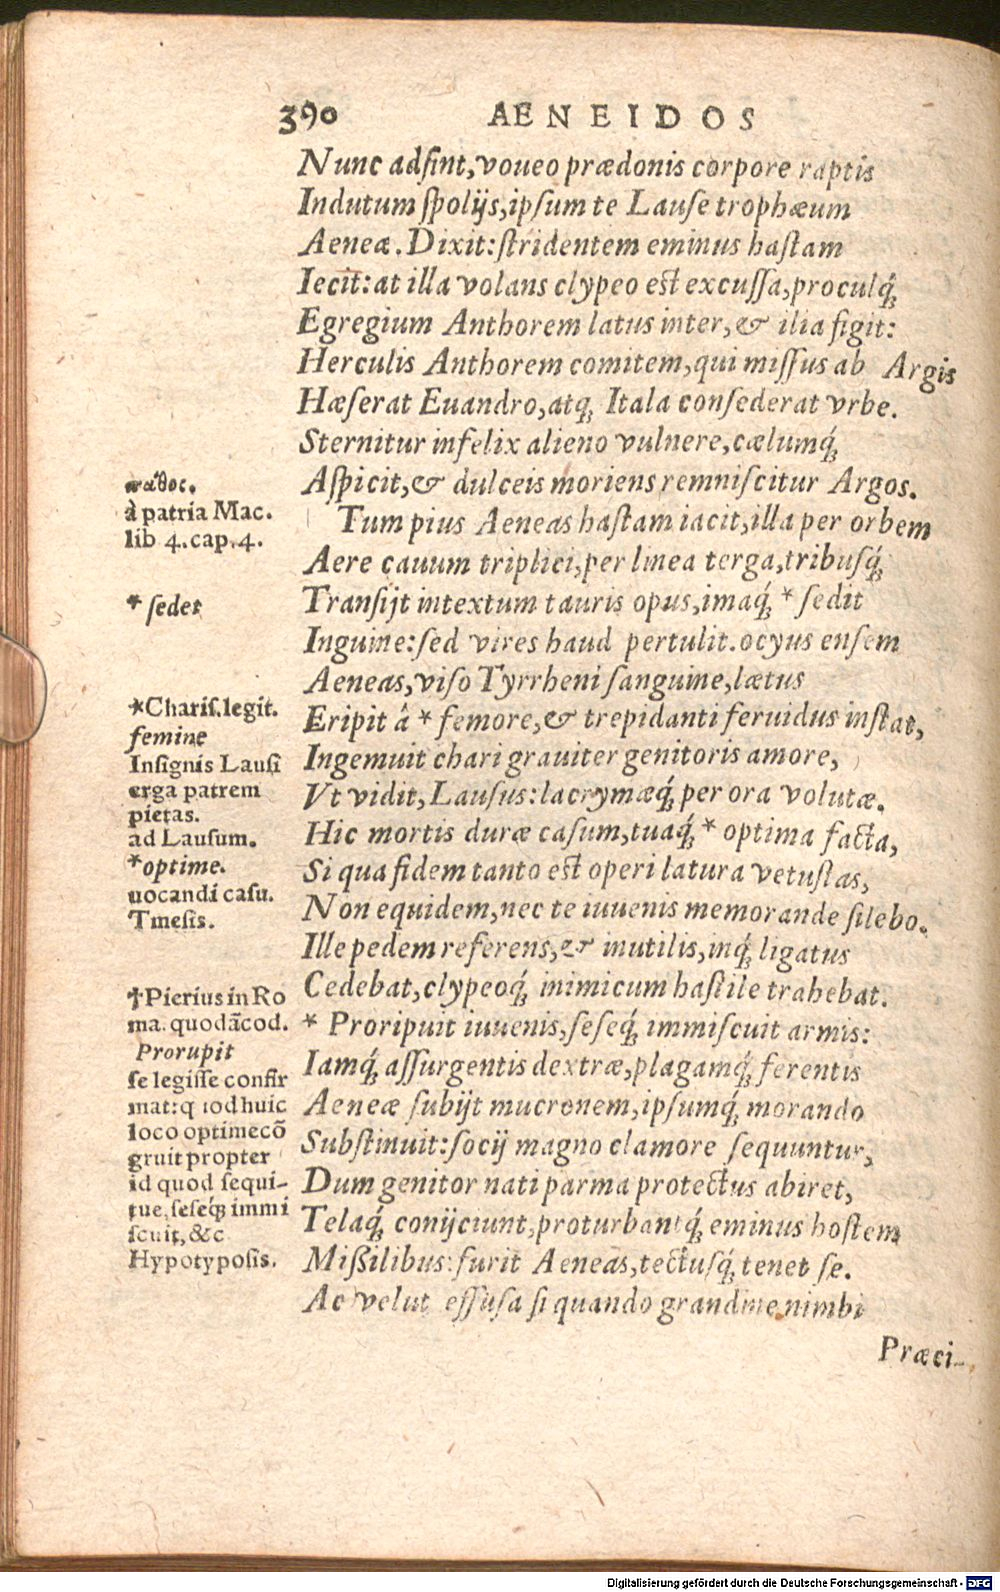 390 AENEIDOS
Nunc adſint, voueo prædonis corpore raptis
Indutum ſpolijs, ipſum te Lauſe trophæum
Aeneæ. Dixit: ſtridentem eminus haſtam
Iecit: at illa volans clypeo eſt excuſſa, proculq́;
Egregium Anthorem latus inter, & ilia figit:
Herculis Anthorem comitem, qui miſſus ab Argis
Hæſerat Euandro, atq; Itala conſederat vrbe.
Sternitur infelix alieno vulnere, cælumq́;
Aſpicit, & dulceis moriens remniſcitur Argos.
Tum pius Aeneas haſtam iacit, illa per orbem
Aere cauum triplici, per linea terga, tribuſq́;
Tranſijt intextum tauris opus, imaq́; * ſedit
Inguine: ſed vires haud pertulit. ocyus enſem
Aeneas, viſo Tyrrheni ſanguine, lætus
Eripit â * femore, & trepidanti feruidus inſtat,
Ingemuit chari grauiter genitoris amore,
Vt vidit, Lauſus: lacrymæq́; per ora volutæ.
Hic mortis duræ caſum, tuaq́; * optima facta,
Si qua fidem tanto eſt operi latura vetuſtas,
Non equidem, nec te iuuenis memorande ſilebo.
Ille pedem referens, & inutilis, inq́; ligatus
Cedebat, clypeoq́; inimicum haſtile trahebat.
* Proripuit iuuenis, ſeſeq́; immiſcuit armis:
Iamq́; aſſurgentis dextræ, plagamq́; ferentis
Aeneæ ſubijt mucronem, ipſumq́; morando
Subſtinuit: ſocij magno clamore ſequuntur,
Dum genitor nati parma protectus abiret,
Telaq́; conijciunt, proturbantq́; eminus hoſtem
Miſſilibus: furit Aeneas, tectuſq́; tenet ſe.
Ac velut effuſa ſi quando grandine nimbi
Præci-
πάθος.
à patria Mac.
lib 4. cap. 4.
* ſedet
*Chariſ. legit.
femine
Inſignis Lauſi
erga patrem
pietas.
ad Lauſum.
*optime.
uocandi caſu.
Tmeſis.
†Pierius in Ro
ma. quodā cod.
Prorupit
ſe legiſſe confir
mat: quod huic
loco optime cō
gruit propter
id quod ſequi-
tur, ſeſeq́; immi
ſcuit, &c
Hypotypoſis.
Digitalisierung gefördert durch die Deutsche Forschungsgemeinschaft - DFG